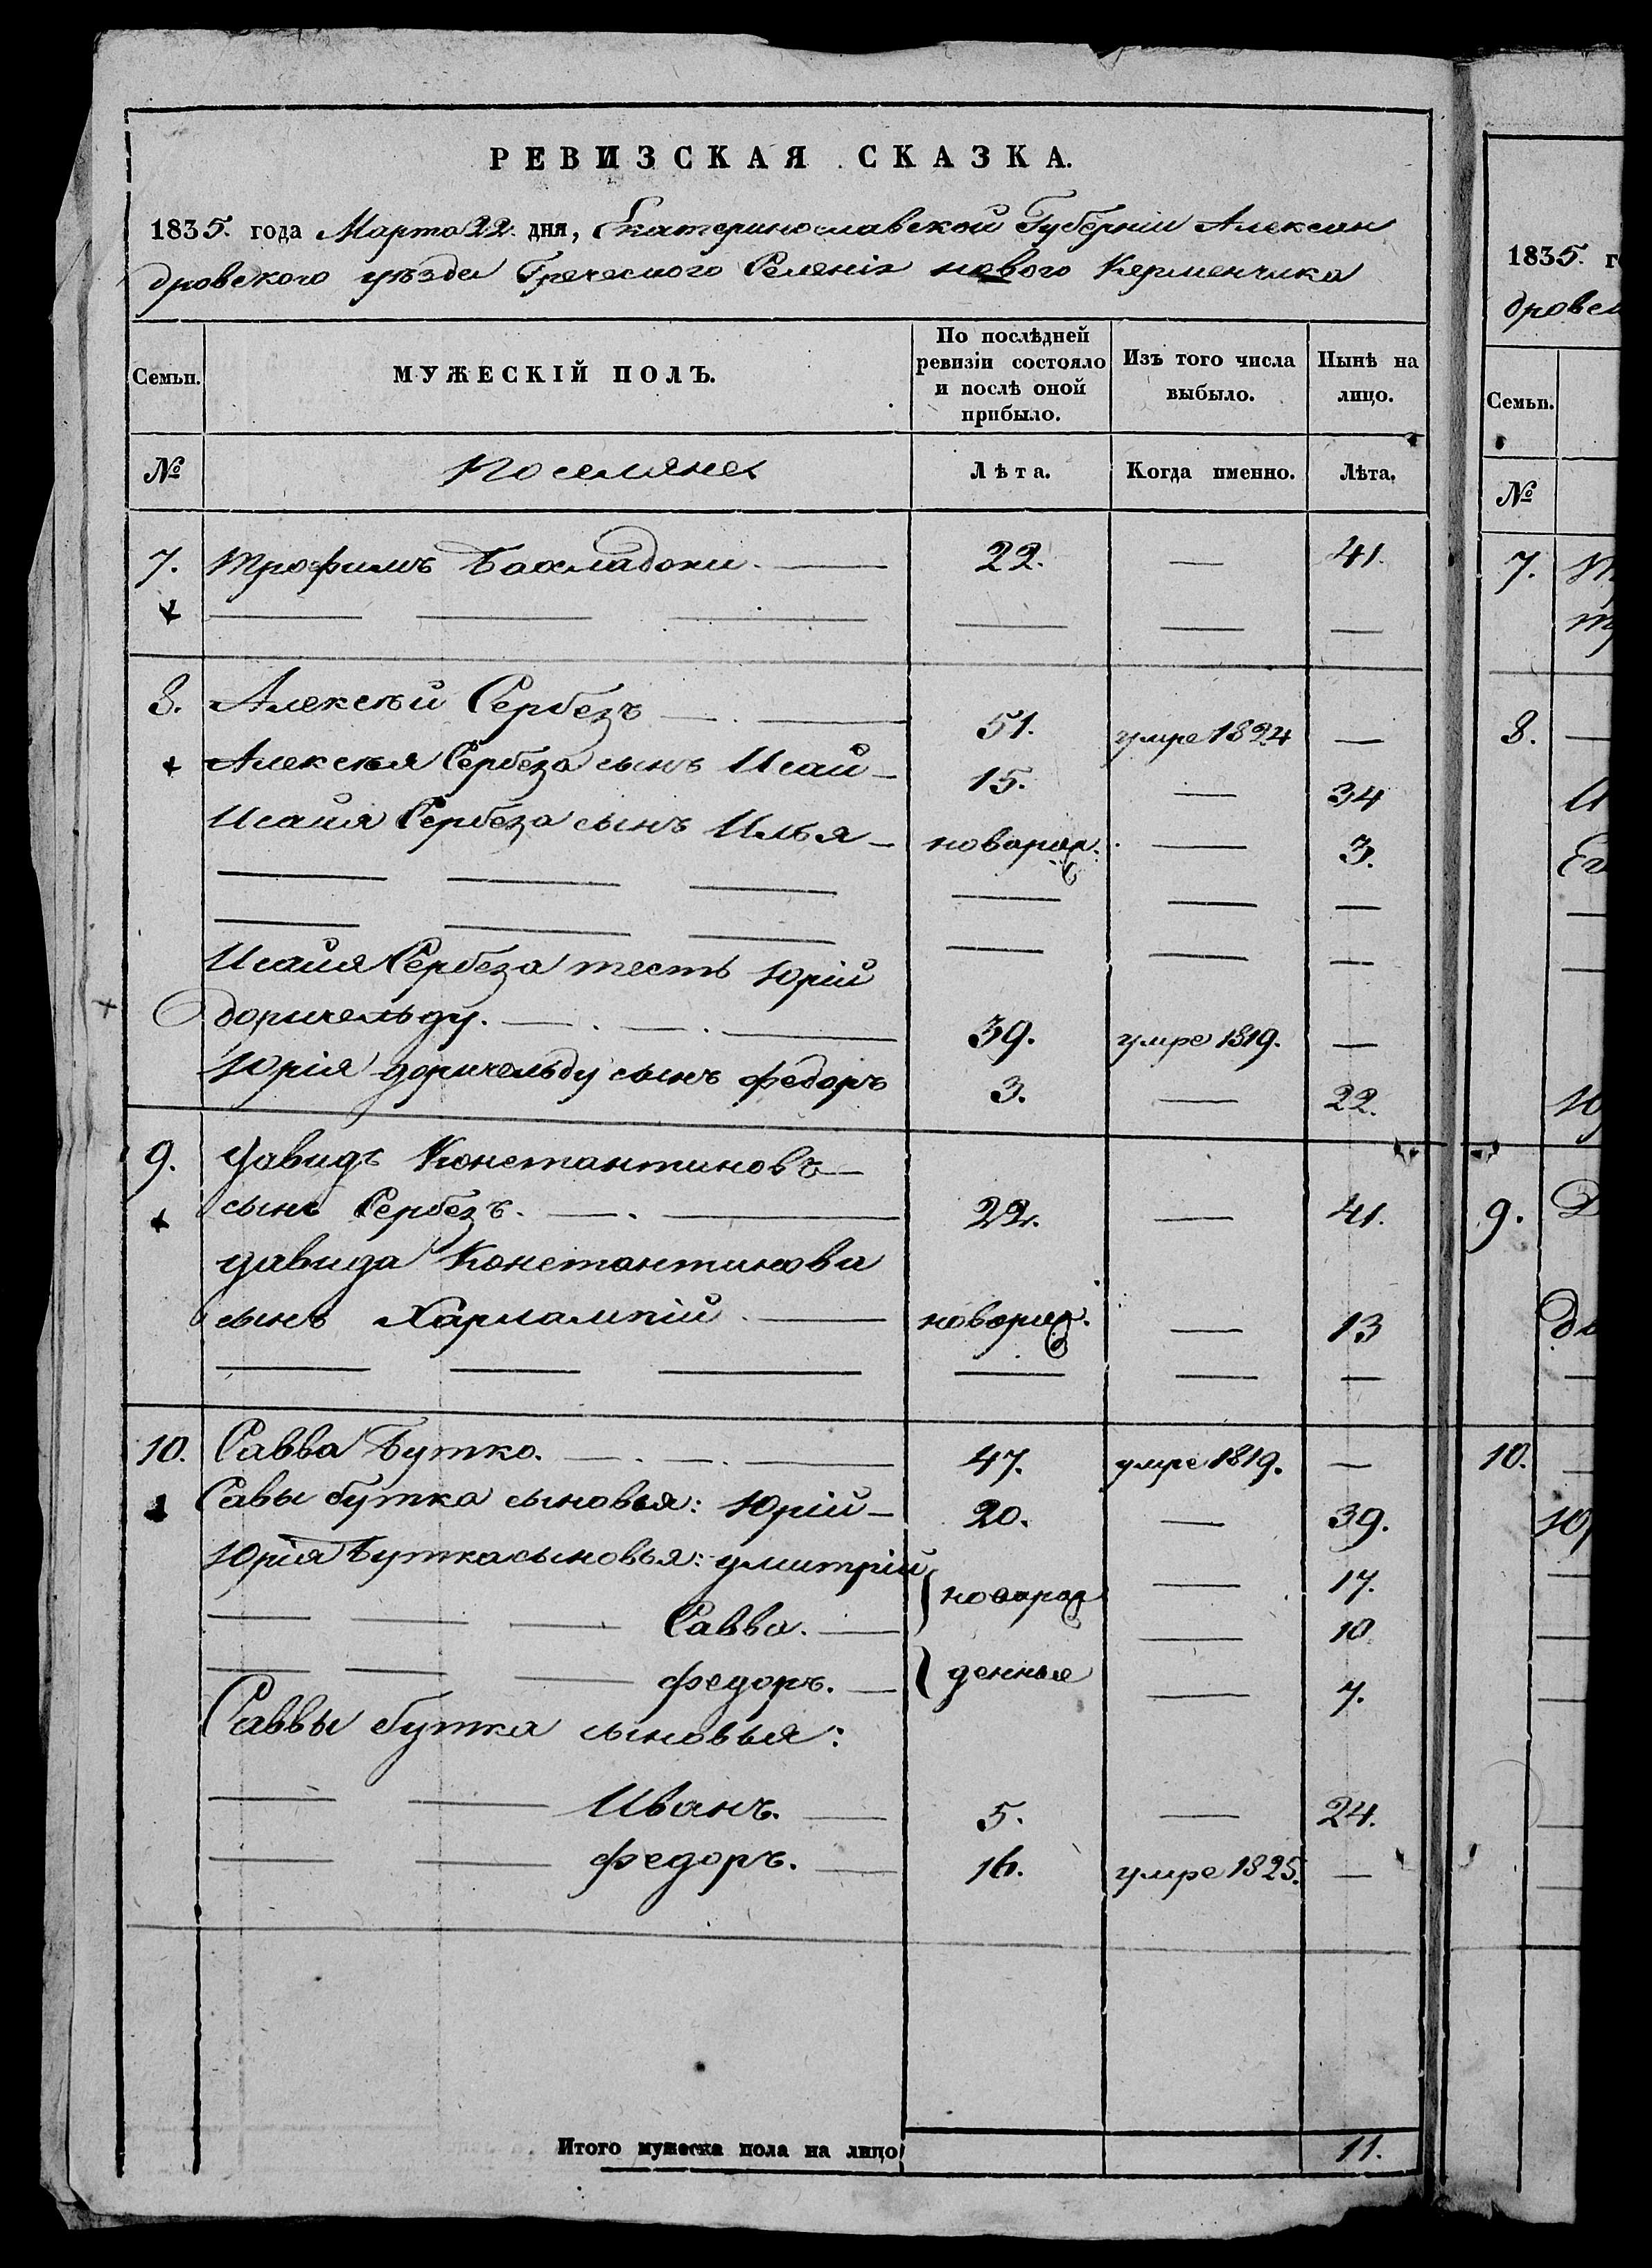 РЕВИЗСКАЯ СКАЗКА.
1835. года Марта 22. дня, Екатеринославской Губерніи Алексан
дровского уѣзда Греческого Селенія нового Керменчика
Семьи. МУЖЕСКІЙ ПОЛЪ. По послѣдней ревизіи состояло и послѣ оной прибыло. Изъ того числа выбыло. Нынѣ на лицо.
№ Поселяне Лѣта. Когда именно. Лѣта.
7. Трофимъ 22. — 41.
8. Алексѣй Сербезъ 51. умре 1824 —
Алексѣя Сербеза сынъ Исай 15. — 34
Исаия Сербеза сынъ Илья новорож. — 3.
Исаия Сербеза тесть Юрій
доричельду. 39. умре 1819. —
Юрія доричельду сынъ федоръ 3. — 22.
9. Давидъ Константиновъ
сынъ Сербезъ. 22. — 41.
Давида Константинова
сынъ Харлампій новорож. — 13
10. Савва Бутко. 47. умре 1819. —
Савы бутка сыновья: Юрій 20. — 39.
Юрія Бутка сыновья: Дмитрій новорож — 17.
Савва. — 10
федоръ. денные — 7.
Саввы бутка сыновья:
Иванъ. 5. — 24.
федоръ. 16. умре 1825. —
Итого мужеска пола на лицо 11.
1835. г
дровск
Семьи.
№
7.
8.
9.
10.